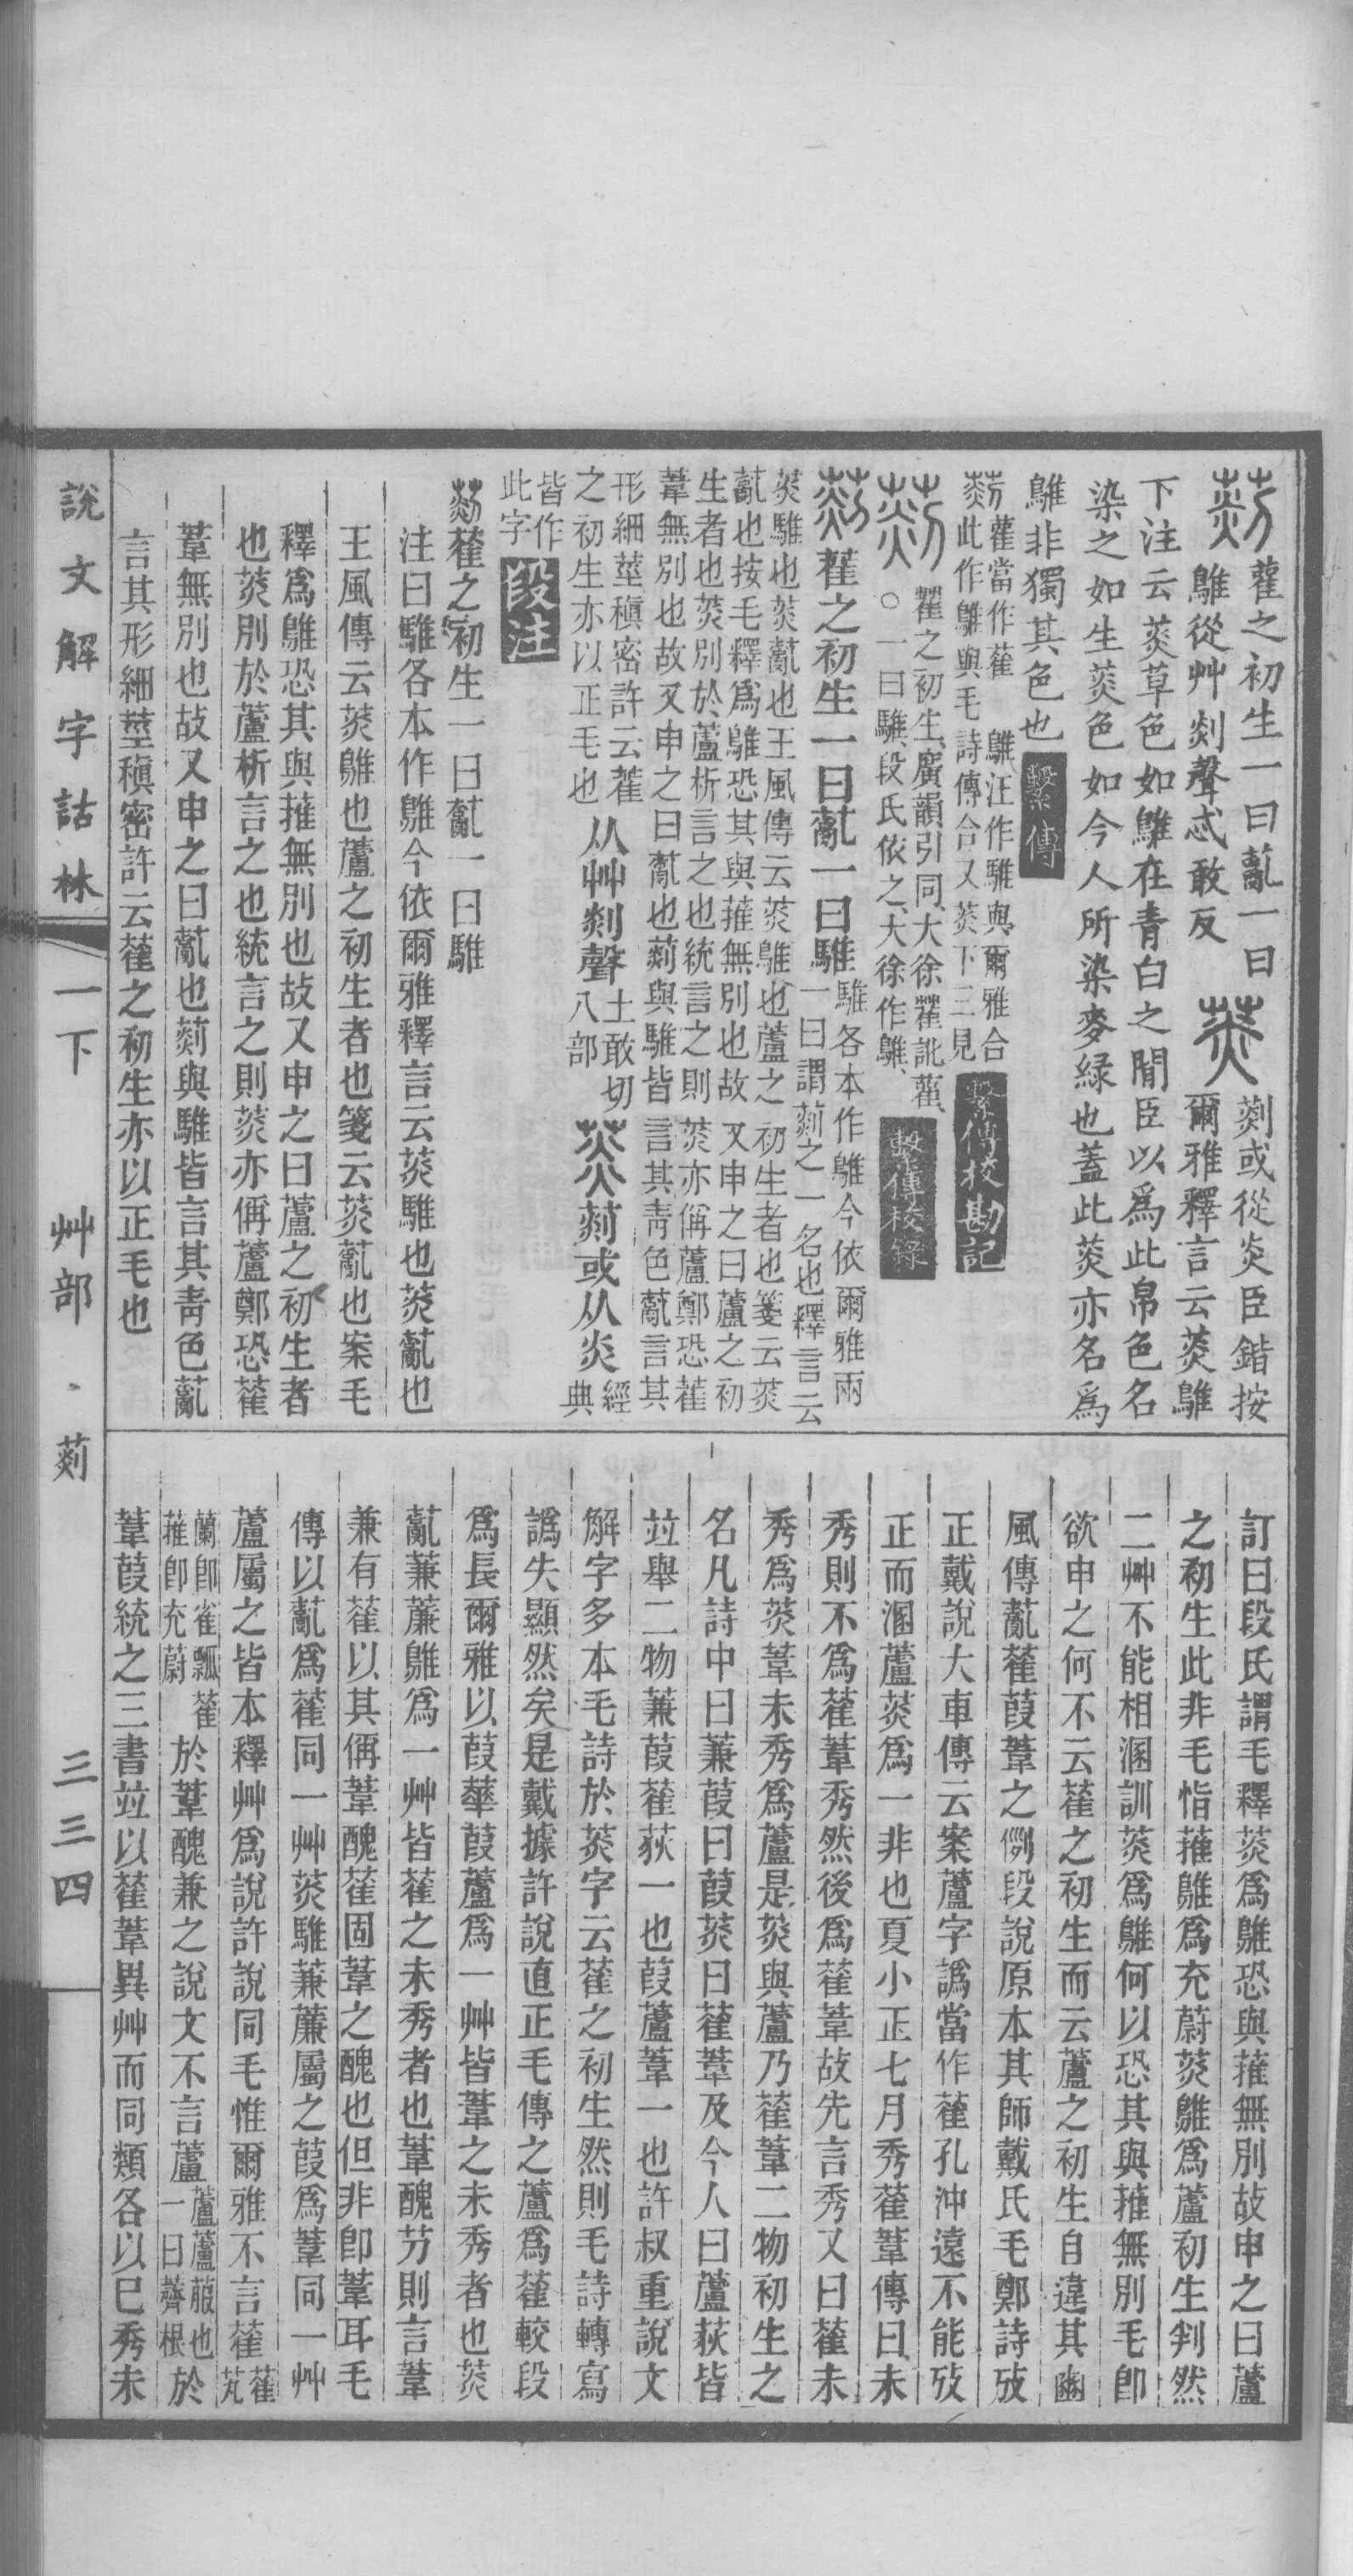 𦾒雚之初生一曰薍一曰
鵻從艸剡聲忒敢反
菼
剡或從炎臣鍇按
爾雅釋言云菼鵻
下注云菼草色如鵻在青白之閒臣以爲此帛色名
染之如生菼色如今人所染麥綠也蓋此菼亦名爲
鵻非獨其色也
繫傳
雚當作萑 鵻汪作騅與爾雅合
菼此作鵻與毛詩傳合又菼下三見
繫傳校勘記
雚之初生廣韻引同大徐雚訛萑
○一曰騅段氏依之大徐作鵻
繫傳校錄
𦵹雚之初生一曰薍一曰騅
騅各本作鵻今依爾雅兩
一曰謂𦵹之一名也釋言云
菼騅也菼薍也王風傳云菼鵻也蘆之初生者也箋云菼
薍也按毛釋爲鵻恐其與蓷無別也故又申之曰蘆之初
生者也菼別於蘆析言之也統言之則菼亦偁蘆鄭恐萑
葦無別也故又申之曰薍也𦵹與騅皆言其靑色薍言其
形細莖稹密許云萑
之初生亦以正毛也
从艸剡聲
土敢切
八部
菼𦵹或从炎
經典
皆作
此字
段注
𦵹萑之初生一曰薍一曰騅
注曰騅各本作鵻今依爾雅釋言云菼騅也菼薍也
王風傳云菼鵻也蘆之初生者也箋云菼薍也案毛
釋爲鵻恐其與蓷無別也故又申之曰蘆之初生者
也菼別於蘆析言之也統言之則菼亦偁蘆鄭恐萑
葦無別也故又申之曰薍也𦵹與騅皆言其靑色薍
言其形細莖稹密許云萑之初生亦以正毛也
訂曰段氏謂毛釋菼爲鵻恐與蓷無別故申之曰蘆
之初生此非毛恉蓷鵻爲充蔚菼鵻爲蘆初生判然
二艸不能相溷訓菼爲鵻何以恐其與蓷無別毛卽
欲申之何不云萑之初生而云蘆之初生自違其豳
風傳薍萑葭葦之例段說原本其師戴氏毛鄭詩攷
正戴說大車傳云案蘆字譌當作萑孔沖遠不能攷
正而溷蘆菼爲一非也夏小正七月秀萑葦傳曰未
秀則不爲萑葦秀然後爲萑葦故先言秀又曰萑未
秀爲菼葦未秀爲蘆是菼與蘆乃萑葦二物初生之
名凡詩中曰蒹葭曰葭菼曰萑葦及今人曰蘆荻皆
竝舉二物蒹葭萑荻一也葭蘆葦一也許叔重說文
解字多本毛詩於菼字云萑之初生然則毛詩轉寫
譌失顯然矣是戴據許說直正毛傳之蘆爲萑較段
爲長爾雅以葭華葭蘆爲一艸皆葦之未秀者也菼
薍蒹薕鵻爲一艸皆萑之未秀者也葦醜芀則言葦
兼有萑以其偁葦醜萑固葦之醜也但非卽葦耳毛
傳以薍爲萑同一艸菼騅蒹薕屬之葭爲葦同一艸
蘆屬之皆本釋艸爲說許說同毛惟爾雅不言萑
萑芄
蘭卽雀瓢萑
蓷卽充蔚
於葦醜兼之說文不言蘆
蘆蘆菔也
一曰薺根
於
葦葭統之三書竝以萑葦異艸而同類各以已秀未
說文解字詁林
一下
艸部
𦵹
三三四